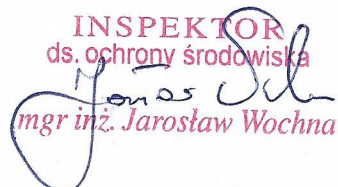 INSPEKTOR
ds. ochrony środowiska
mgr inż. Jarosław Wochna